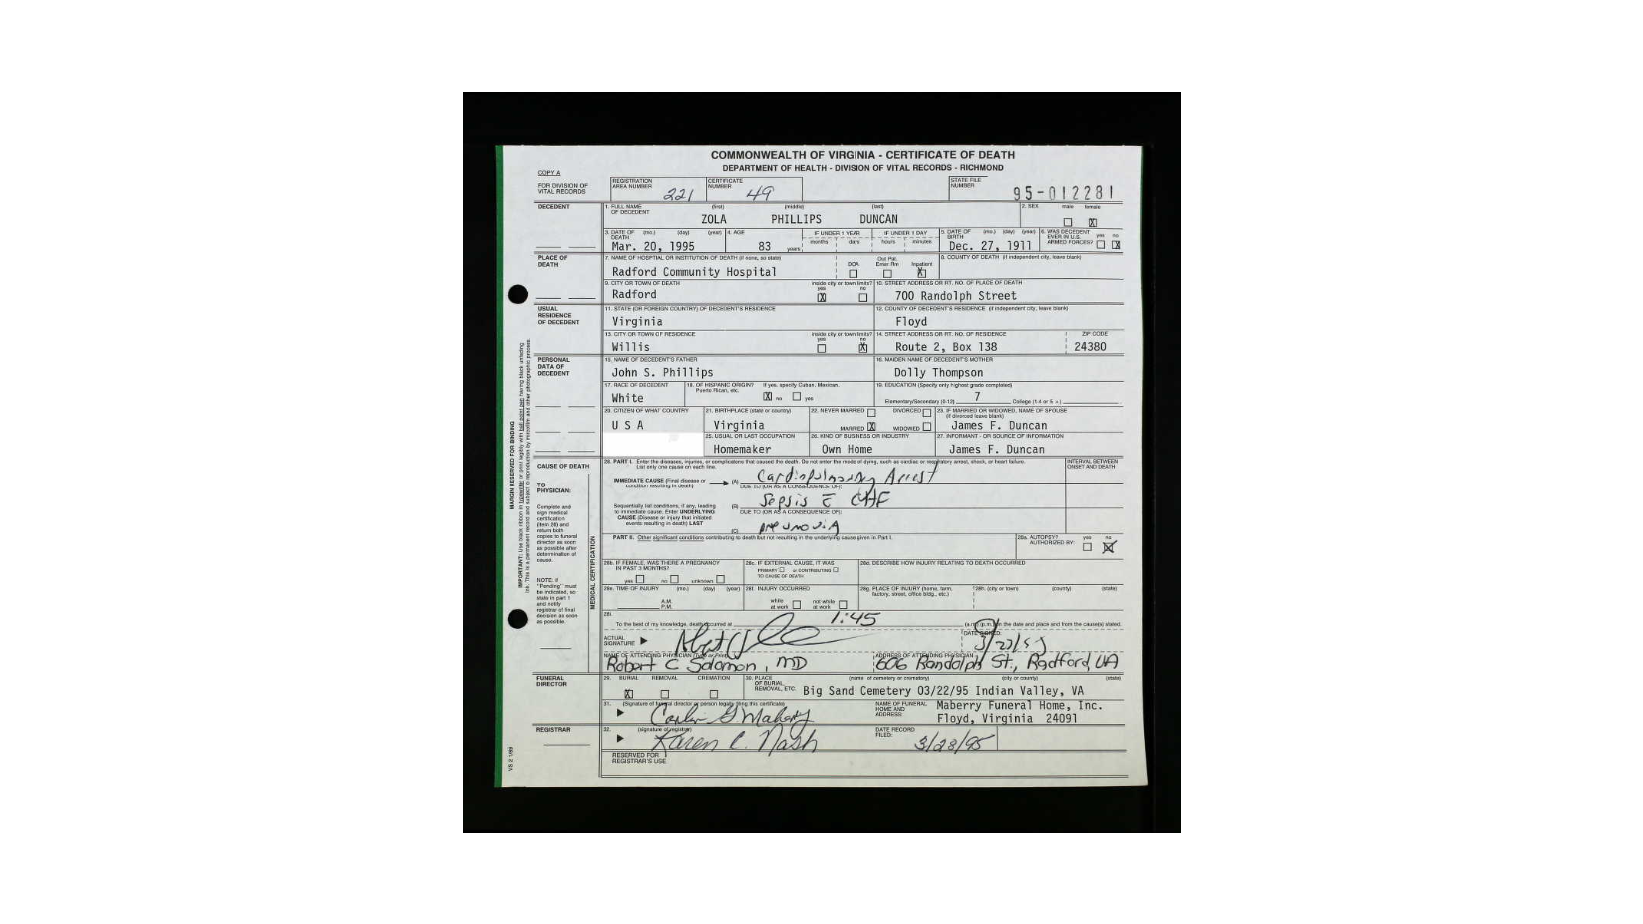 COMMONWEALTH OF VIRGINIA - CERTIFICATE OF DEATH
DEPARTMENT OF HEALTH - DIVISION OF VITAL RECORDS - RICHMOND
COPY A
FOR DIVISION OF VITAL RECORDS
REGISTRATION AREA NUMBER 221
CERTIFICATE NUMBER 49
STATE FILE NUMBER 95-012281
DECEDENT
1. FULL NAME OF DECEDENT (first) (middle) (last)
ZOLA PHILLIPS DUNCAN
2. SEX male female X
3. DATE OF DEATH (mo.) (day) (year)
Mar. 20, 1995
4. AGE 83 years
IF UNDER 1 YEAR months days
IF UNDER 1 DAY hours minutes
5. DATE OF BIRTH (mo.) (day) (year)
Dec. 27, 1911
6. WAS DECEDENT EVER IN U.S. ARMED FORCES? yes no X
PLACE OF DEATH
7. NAME OF HOSPITAL OR INSTITUTION OF DEATH (if none, so state)
Radford Community Hospital
DOA Out Pat. Emer Rm Inpatient X
8. COUNTY OF DEATH (if independent city, leave blank)
9. CITY OR TOWN OF DEATH inside city or town limits? yes no
Radford X
10. STREET ADDRESS OR RT. NO. OF PLACE OF DEATH
700 Randolph Street
USUAL RESIDENCE OF DECEDENT
11. STATE (OR FOREIGN COUNTRY) OF DECEDENT'S RESIDENCE
Virginia
12. COUNTY OF DECEDENT'S RESIDENCE (if independent city, leave blank)
Floyd
13. CITY OR TOWN OF RESIDENCE inside city or town limits? yes no
Willis X
14. STREET ADDRESS OR RT. NO. OF RESIDENCE ZIP CODE
Route 2, Box 138 24380
PERSONAL DATA OF DECEDENT
15. NAME OF DECEDENT'S FATHER
John S. Phillips
16. MAIDEN NAME OF DECEDENT'S MOTHER
Dolly Thompson
17. RACE OF DECEDENT
White
18. OF HISPANIC ORIGIN? If yes, specify Cuban, Mexican, Puerto Rican, etc.
X no yes
19. EDUCATION (Specify only highest grade completed)
Elementary/Secondary (0-12) 7 College (1-4 or 5 +)
20. CITIZEN OF WHAT COUNTRY
U S A
21. BIRTHPLACE (state or country)
Virginia
22. NEVER MARRIED DIVORCED
MARRIED X WIDOWED
23. IF MARRIED OR WIDOWED, NAME OF SPOUSE (if divorced leave blank)
James F. Duncan
25. USUAL OR LAST OCCUPATION
Homemaker
26. KIND OF BUSINESS OR INDUSTRY
Own Home
27. INFORMANT - OR SOURCE OF INFORMATION
James F. Duncan
CAUSE OF DEATH
TO PHYSICIAN:
Complete and sign medical certification (item 28) and return both copies to funeral director as soon as possible after determination of cause.
NOTE: If "Pending" must be indicated, so state in part 1 and notify registrar of final decision as soon as possible.
MEDICAL CERTIFICATION
28. PART I. Enter the diseases, injuries, or complications that caused the death. Do not enter the mode of dying, such as cardiac or respiratory arrest, shock, or heart failure.
List only one cause on each line.
INTERVAL BETWEEN ONSET AND DEATH
IMMEDIATE CAUSE (Final disease or condition resulting in death) (A) Cardiopulmonary Arrest
DUE TO (OR AS A CONSEQUENCE OF):
Sequentially list conditions, if any, leading to immediate cause. Enter UNDERLYING CAUSE (Disease or injury that initiated events resulting in death) LAST
(B) Sepsis c̄ CHF
DUE TO (OR AS A CONSEQUENCE OF):
(C) pneumonia
PART II. Other significant conditions contributing to death but not resulting in the underlying cause given in Part I.
28a. AUTOPSY? AUTHORIZED BY: yes no X
28b. IF FEMALE, WAS THERE A PREGNANCY IN PAST 3 MONTHS?
yes no unknown
28c. IF EXTERNAL CAUSE, IT WAS
PRIMARY or CONTRIBUTING
TO CAUSE OF DEATH
28d. DESCRIBE HOW INJURY RELATING TO DEATH OCCURRED
28e. TIME OF INJURY (mo.) (day) (year)
A.M.
P.M.
28f. INJURY OCCURRED
while at work not while at work
28g. PLACE OF INJURY (home, farm, factory, street, office bldg., etc.)
28h. (city or town) (county) (state)
28i.
To the best of my knowledge, death occurred at 1:45 (a.m.) (p.m.) on the date and place and from the cause(s) stated.
ACTUAL SIGNATURE
DATE SIGNED:
NAME OF ATTENDING PHYSICIAN (Type or Print)
Robert C Solomon, MD
ADDRESS OF ATTENDING PHYSICIAN
606 Randolph St., Radford, VA
FUNERAL DIRECTOR
29. BURIAL REMOVAL CREMATION
X
30. PLACE OF BURIAL, REMOVAL, ETC. (name of cemetery or crematory) (city or county) (state)
Big Sand Cemetery 03/22/95 Indian Valley, VA
31. (Signature of funeral director or person legally filing this certificate)
NAME OF FUNERAL HOME AND ADDRESS:
Maberry Funeral Home, Inc.
Floyd, Virginia 24091
REGISTRAR
32. (signature of registrar)
Karen C. Nash
DATE RECORD FILED: 3/28/95
RESERVED FOR REGISTRAR'S USE
MARGIN RESERVED FOR BINDING